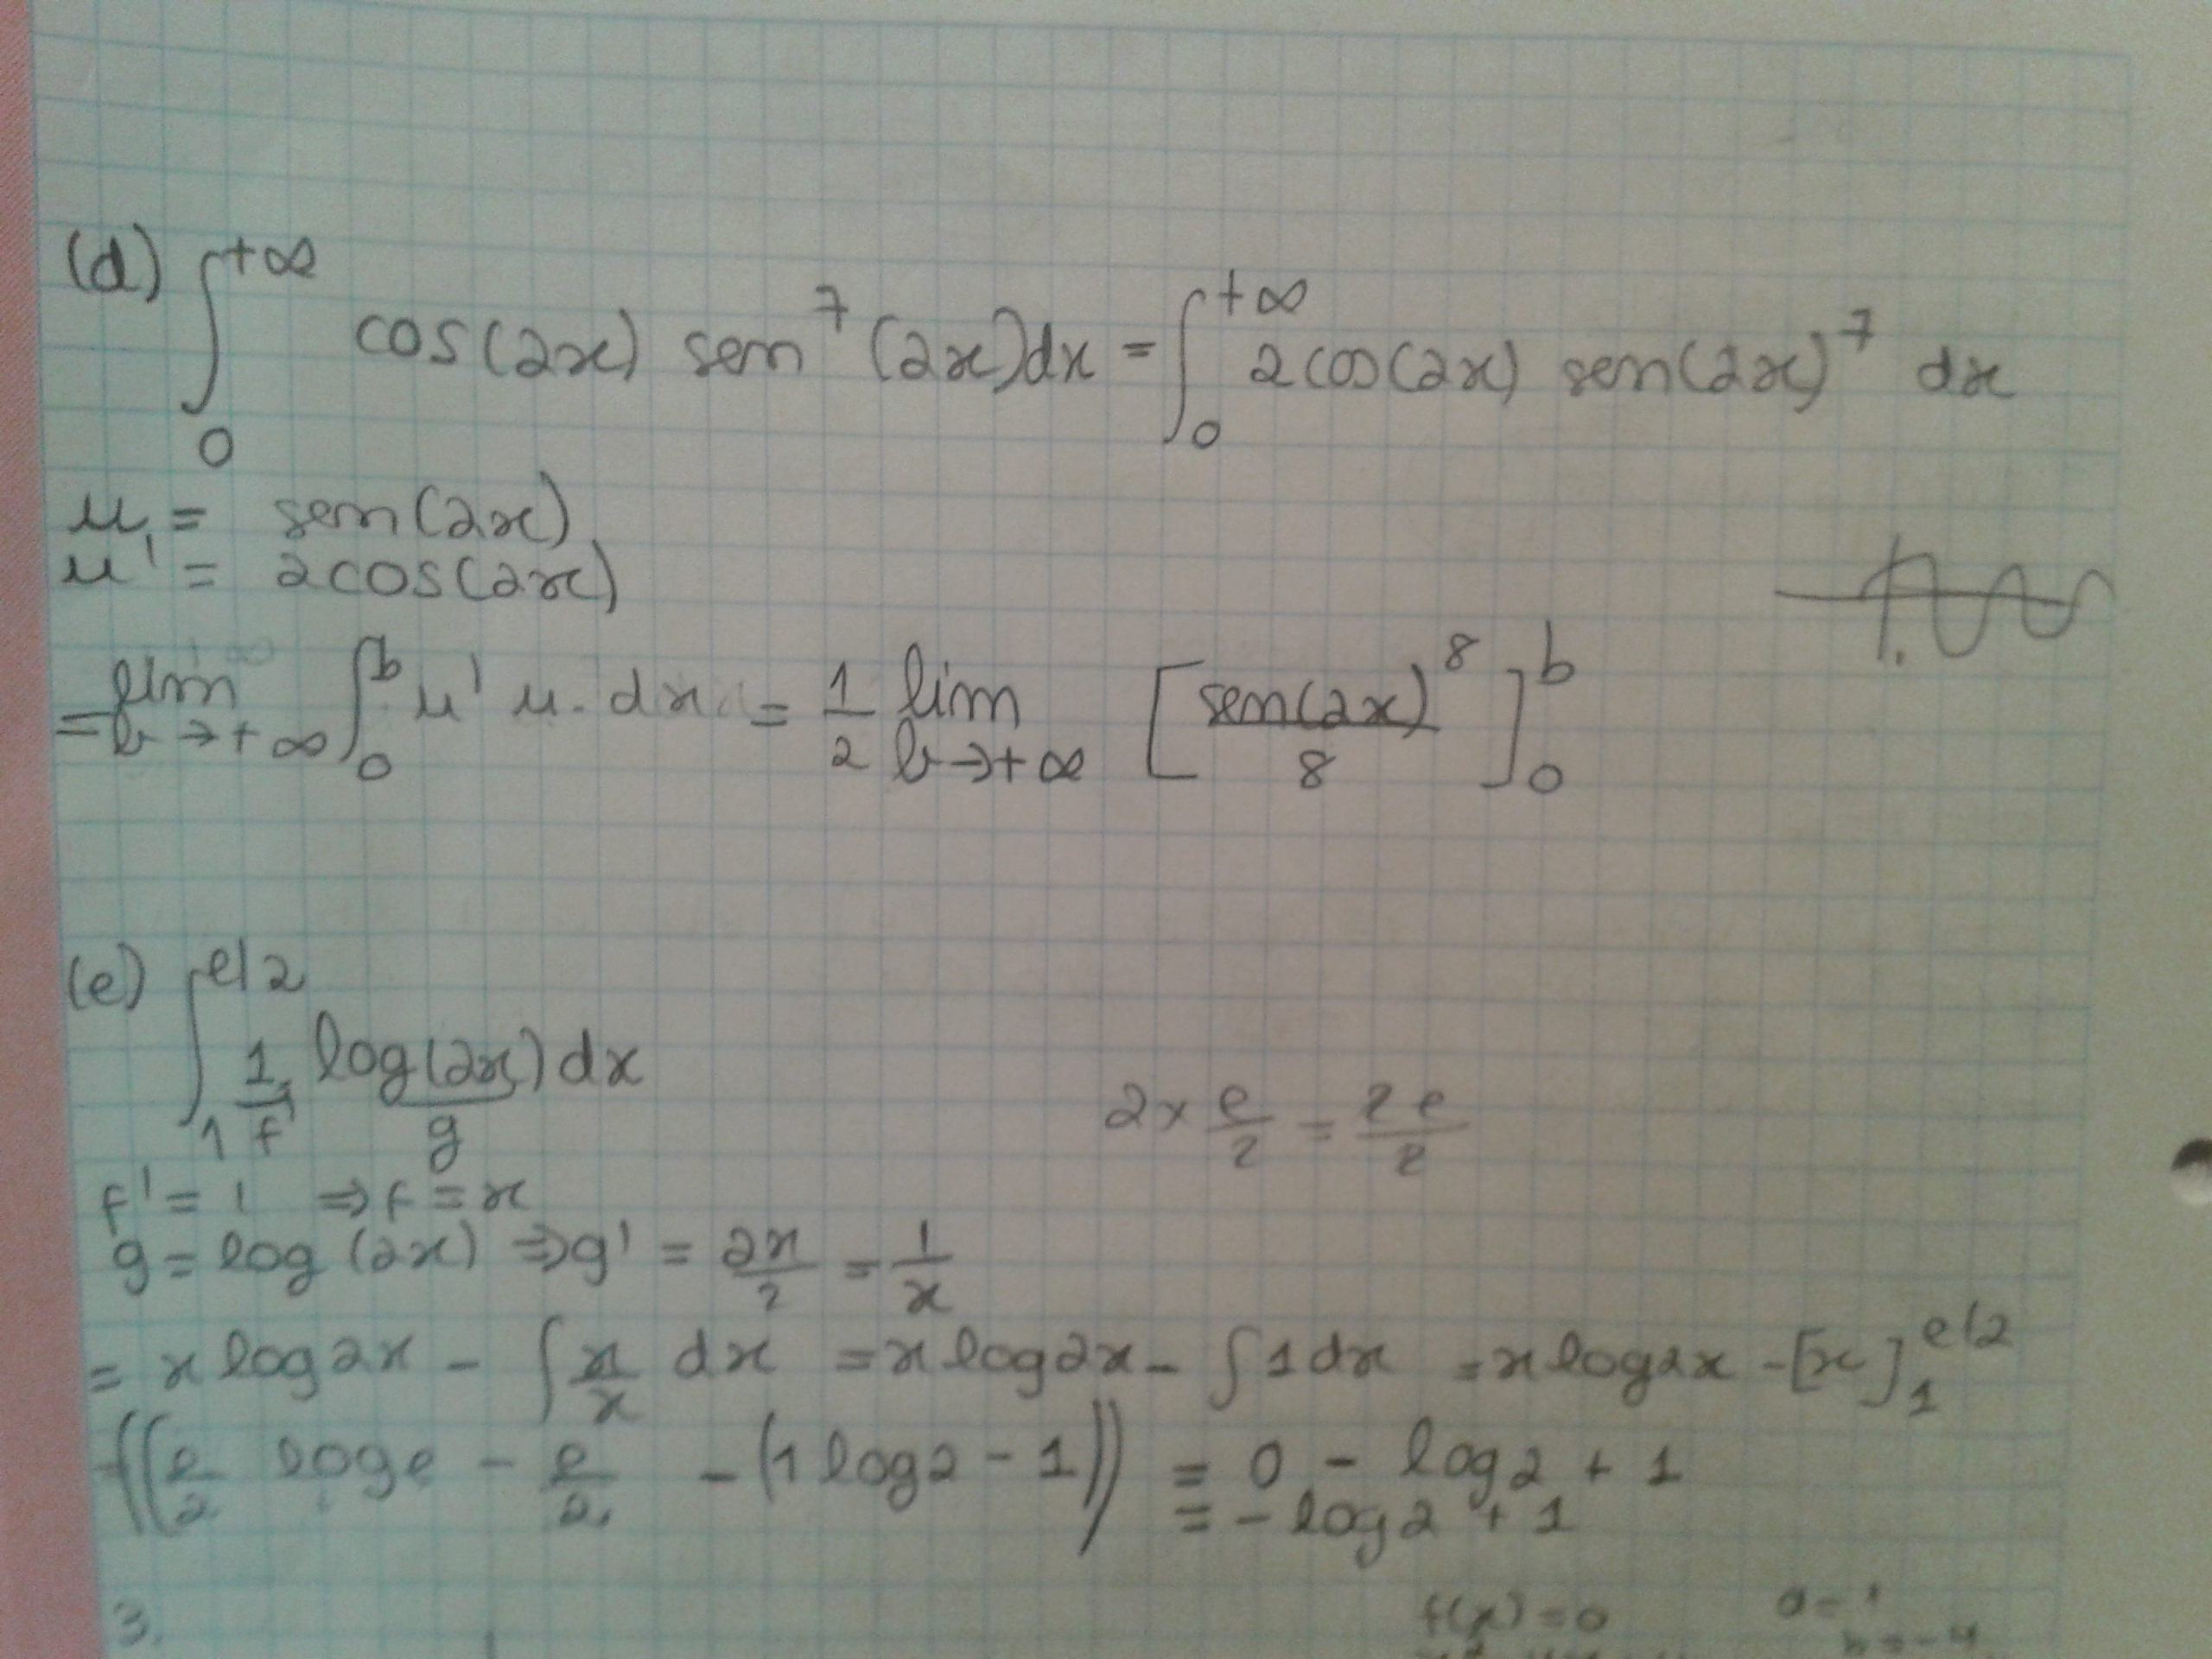 (d) ∫₀^{+∞} cos(2x) sen⁷(2x)dx = ∫₀^{+∞} 2cos(2x) sen(2x)⁷ dx
u = sen(2x)
u' = 2cos(2x)
= lim b→+∞ ∫₀^b u' u. dx = 1/2 lim b→+∞ [sen(2x)⁸/8]₀^b
(e) ∫₁^{e/2} 1. log(2x) dx
f' g
2 × e/2 = 2e/2
f' = 1 ⇒ f = x
g = log(2x) ⇒ g' = 2x/2 = 1/x
= x log2x - ∫ x/x dx = x log2x - ∫ 1 dx = x log2x - [x]₁^{e/2}
((e/2 log e - e/2 - (1 log2 - 1)) = 0 - log2 + 1
= - log2 + 1
3.
f(x) = 0
b = -4